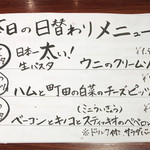 本日の日替わりメニュー
日本一太い！
生パスタ
ウニのクリームソ
ハムと町田の白菜のチーズピッ
（ミニういきょう）
ベーコンとキノコとスティッキオのペペロン
※ドリンク付